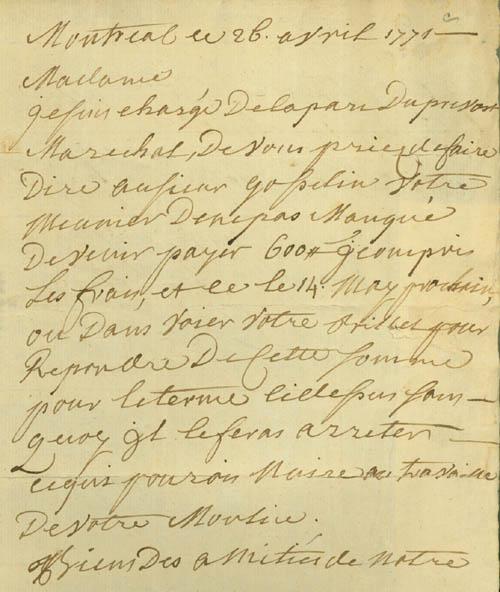 Montreal ce 26. avril 1771
Madame
je suis chargé Dela part Du prevost
Marechal, De vous prier de faire
Dire au sieur gosselin votre
Meunier De ne pas Manqué
De venir payer 600# y compris
Les frais, et ce le 14 May prochain,
ou Dans voier votre Billet pour
Repondre De Cette somme
pour le terme ci dessus sans
quoy il le feras arreter
ce qui pourois Nuire au travaille
De votre Moulin.
Des amitiés de Notre